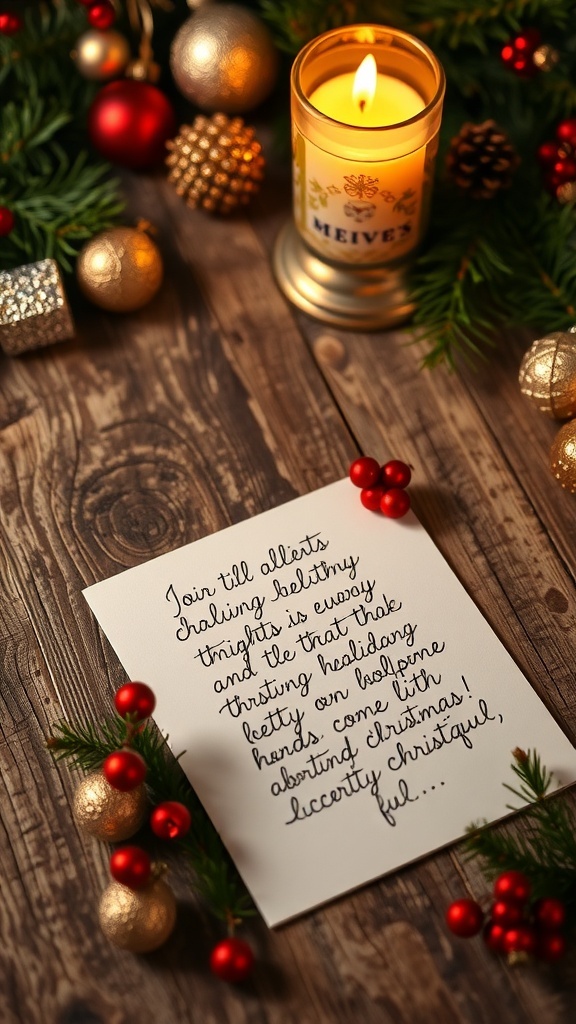 MEIVE'S
Join till allerts
chaliung belithy
tmights is euwoy
and tle that thak
thrstung healidang
betty on bolpine
hands. come lith
aborting christmas!
liccertty christqful,
ful....